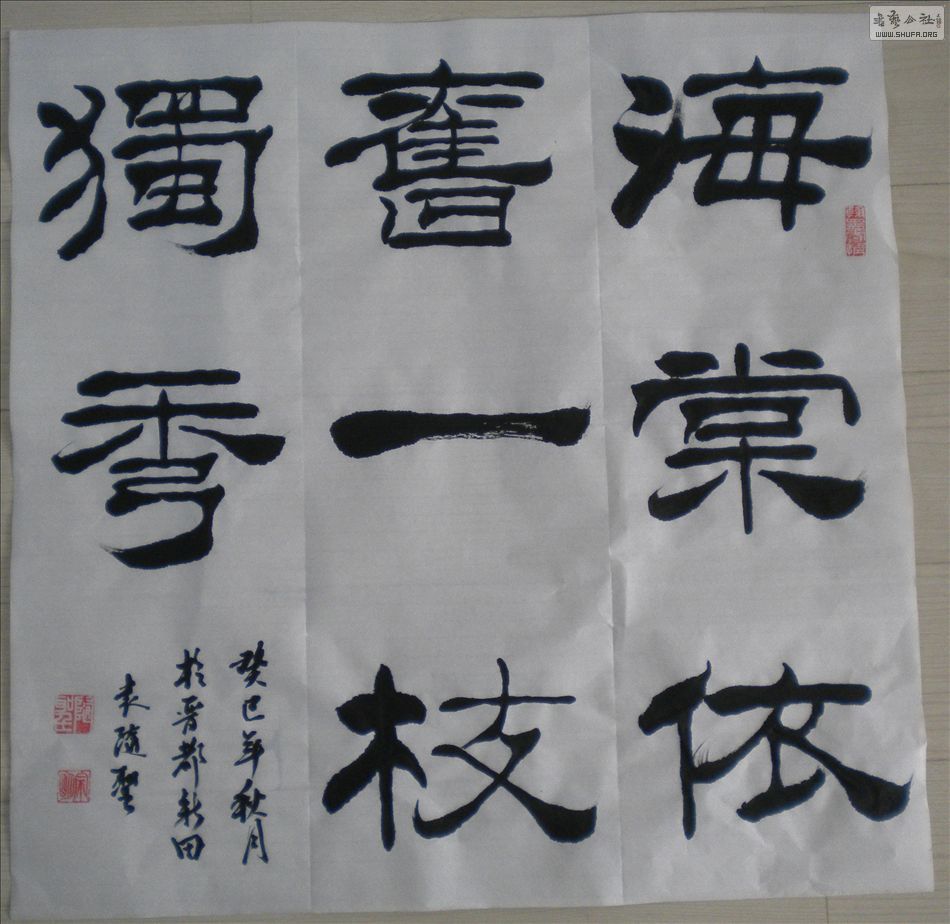 海棠依
舊一枝
獨秀
癸巳年秋月
於晉都新田
袁隨聖
書藝公社
WWW.SHUFA.ORG